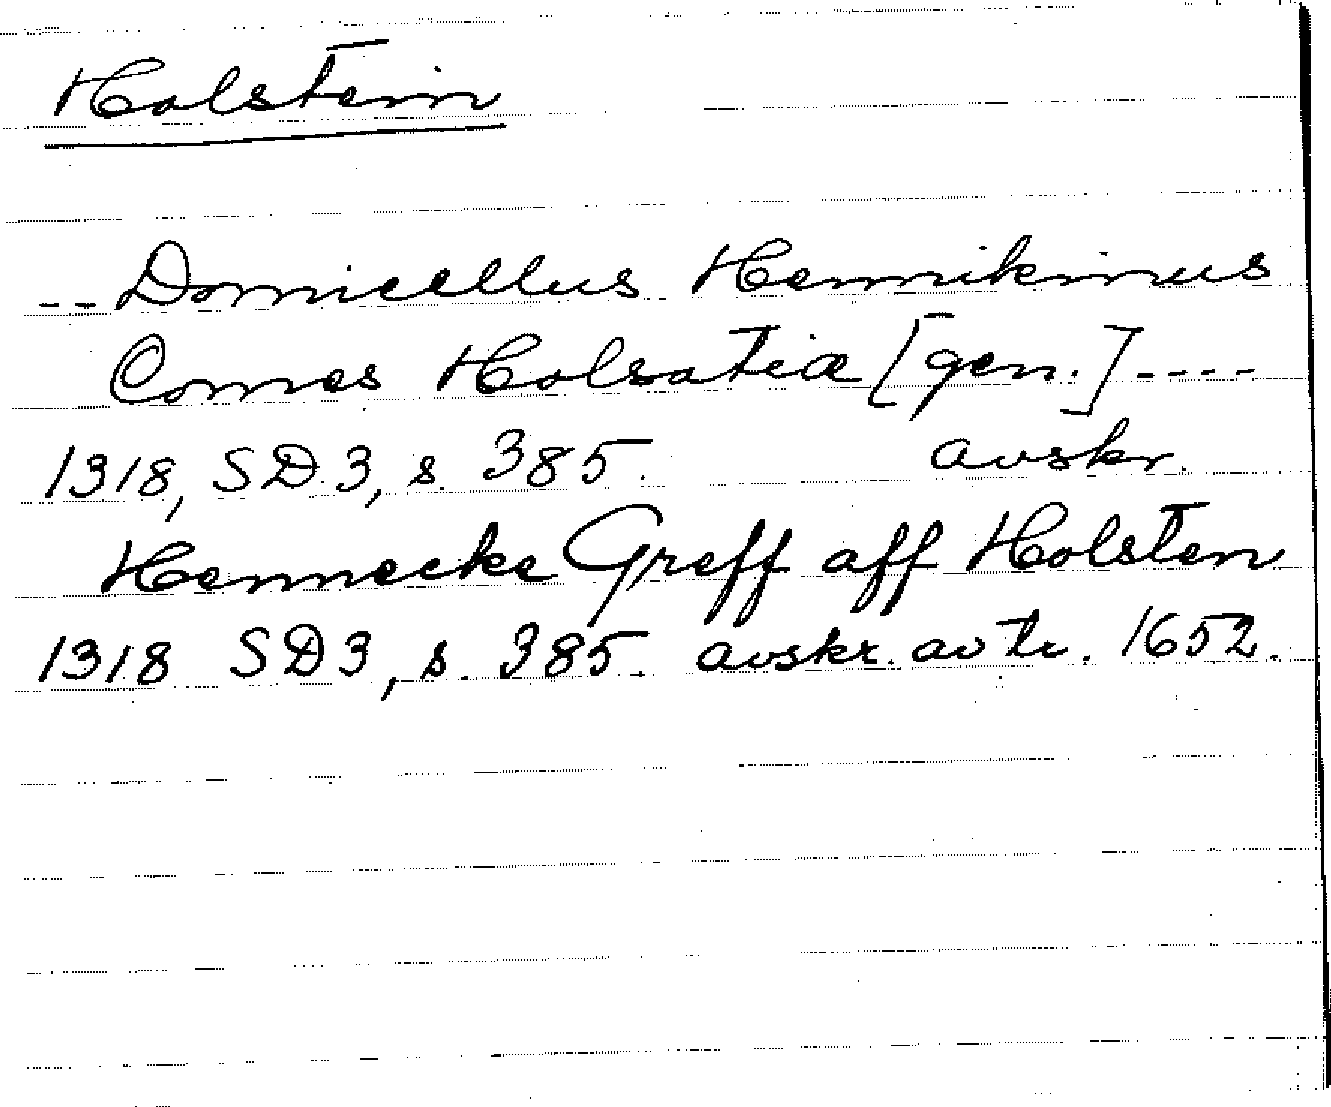 Holstein
-- Domicellus Hennikinus
Comes Holsatiæ [gen.] ----
1318, SD 3, s. 385. avskr.
Hennecke Greff aff Holsten
1318 SD 3, s. 385. avskr. av tr. 1652.